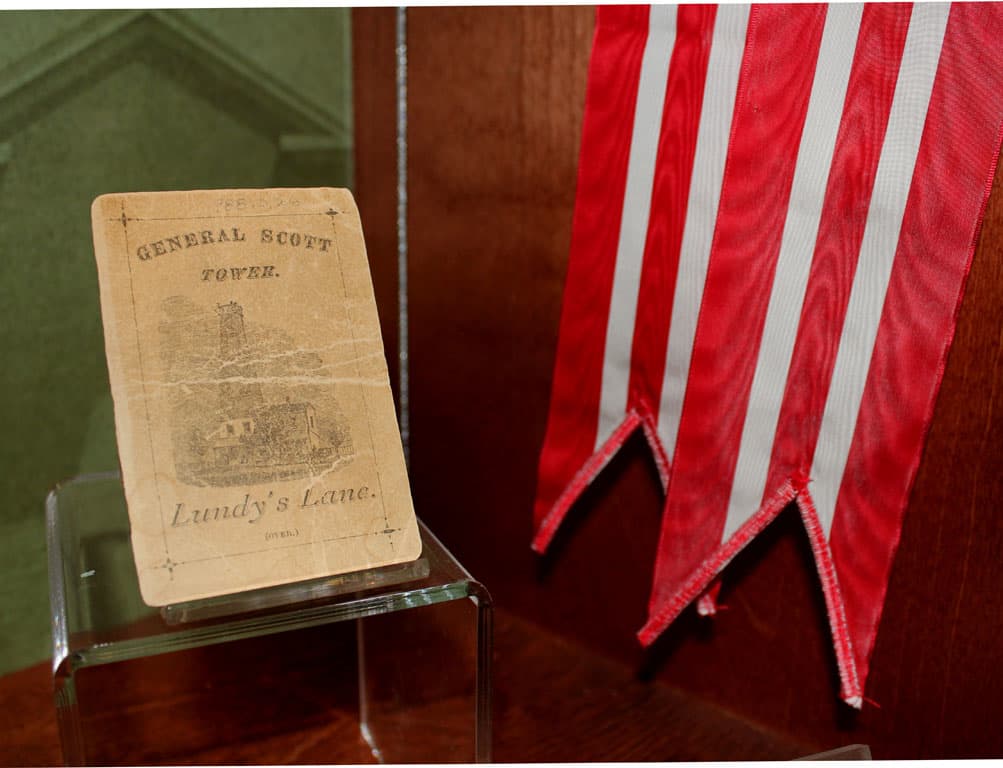 GENERAL SCOTT
TOWER.
Lundy's Lane.
(OVER.)